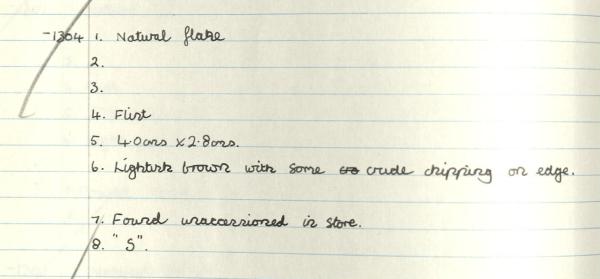 -1304 1. Natural flake
2.
3.
4. Flint
5. 4.0cms x 2.8cms.
6. Lightish brown with some cru crude chipping on edge.
7. Found unaccessioned in store.
8. "S".